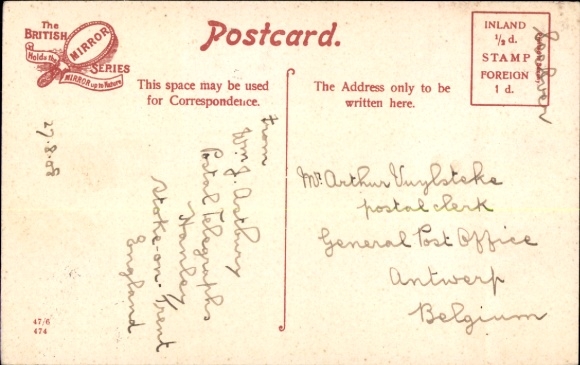 The
BRITISH
MIRROR
SERIES
Holds the
MIRROR up to Nature
Postcard.
INLAND
½ d.
STAMP
FOREIGN
1 d.
This space may be used
for Correspondence.
The Address only to be
written here.
27.8.08
From
Wm J. Astbury
Postal Telegraphs
Hanley
Stoke-on-Trent
England
Mr. Arthur Vuylsteke
postal clerk
General Post Office
Antwerp
Belgium
47/6
474